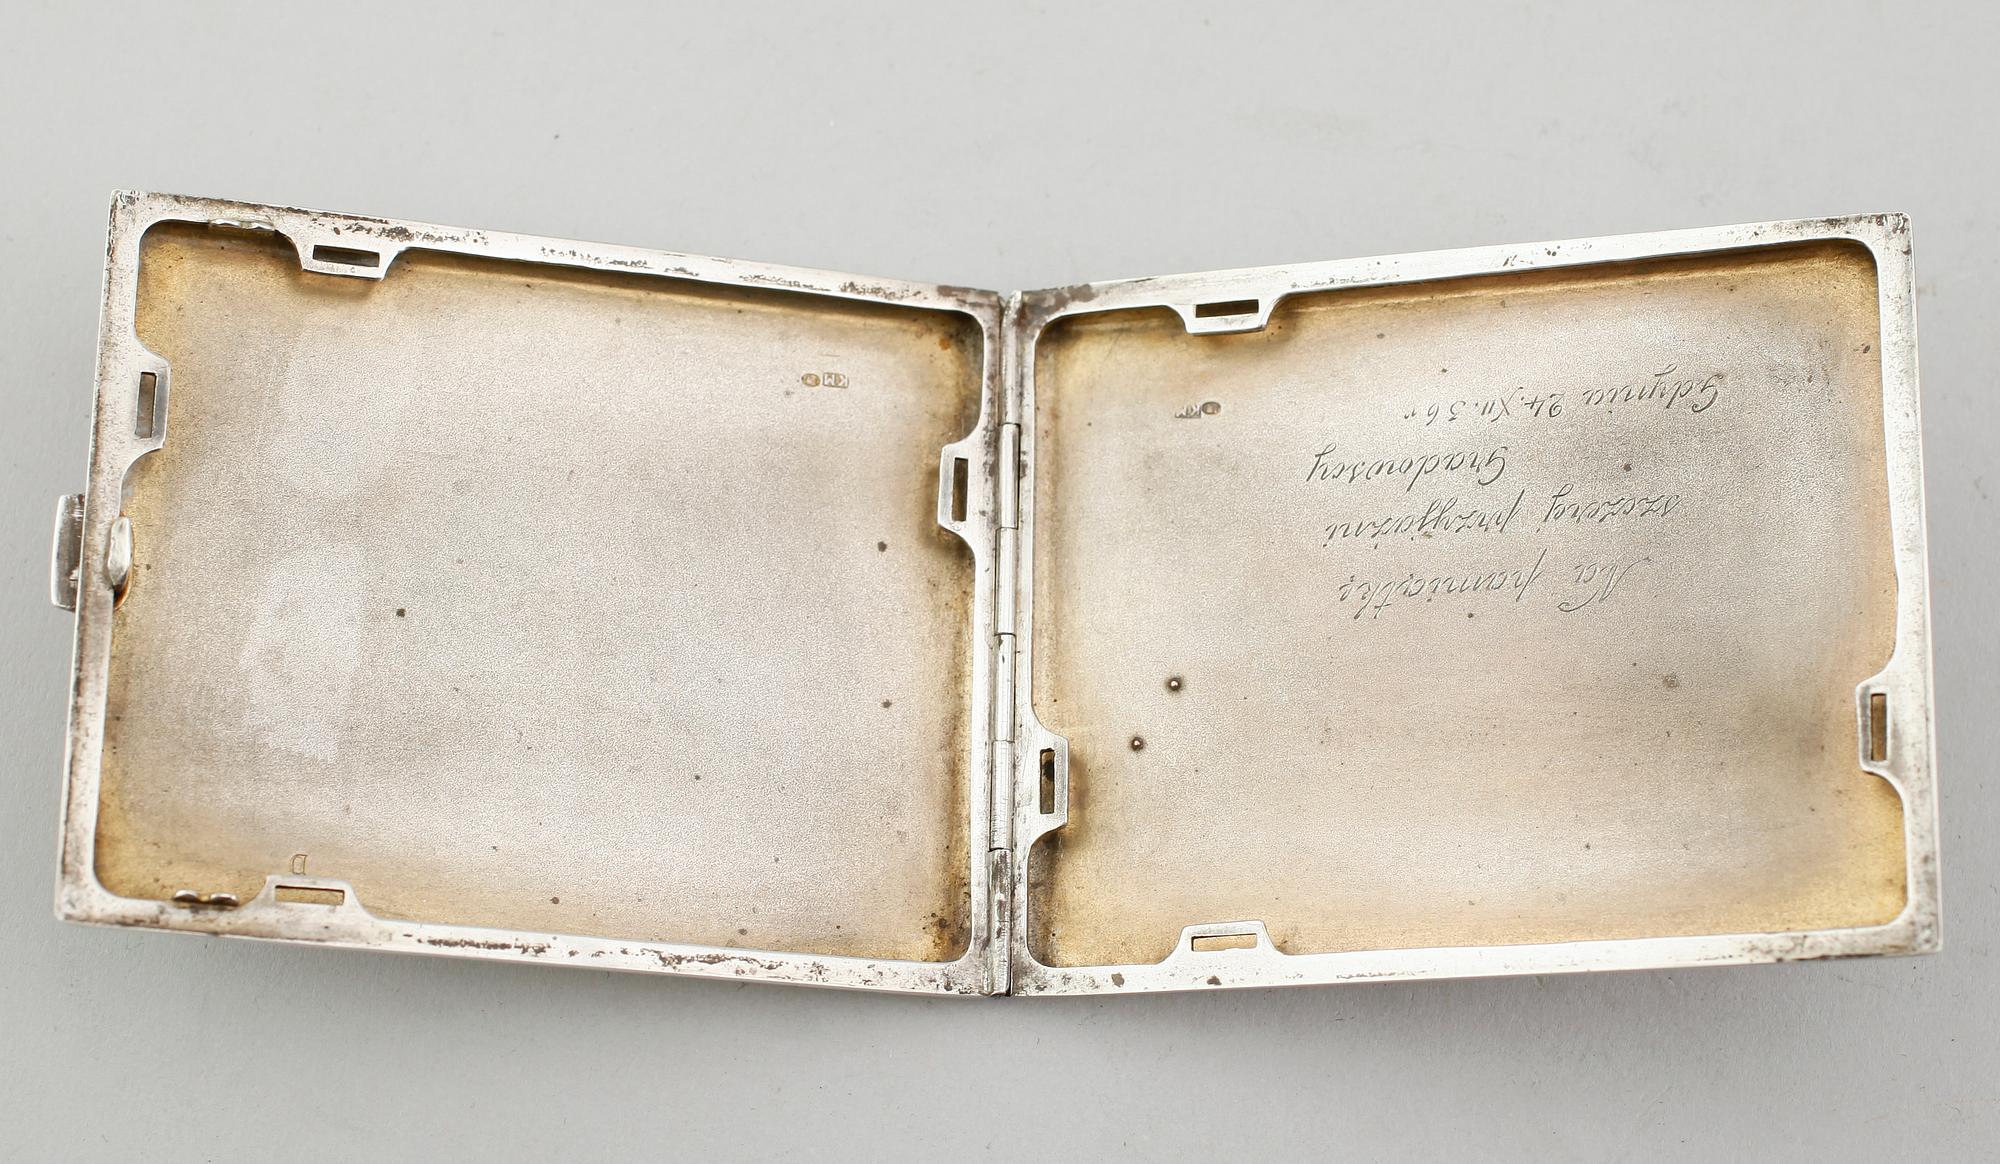 Na pamiątkę
szczerej przyjaźni
Gradowscy
Gdynia 24.XII.36r
KM
KM
D